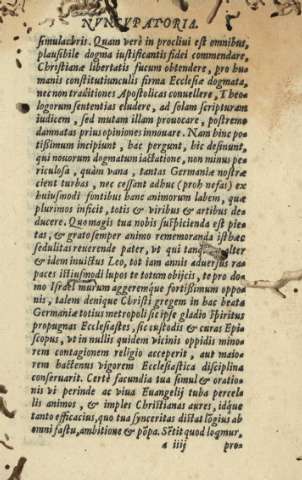 NVNCVPATORIA.
simulachris. Quàm verò in procliui est omnibus,
plausibile dogma iustificantis fidei commendare,
Christianæ libertatis fucum obtendere, pro hu
manis constitutiunculis firma Ecclesiæ dogmata,
nec non traditiones Apostolicas conuellere, Theo
logorum sententias eludere, ad solam scripturam
iudicem, sed mutam illam prouocare, postremò
damnatas prius opiniones innouare. Nam hinc po
tißimum incipiunt, hac pergunt, hîc desinunt,
qui nouorum dogmatum iactatione, non minus pe
riculosa, quàm vana, tantas Germaniæ nostræ
cient turbas, nec cessant adhuc (proh nefas) ex
huiusmodi fontibus hanc animorum labem, quæ
plurimos inficit, totis & viribus & artibus de
ducere. Quo magis tua nobis suspicienda est pie
tas, & grato semper animo rememoranda isthæc
sedulitas reuerende pater, vt qui tanquam alter
& idem inuictus Leo, tot iam annis aduersus ra
paces istiusmodi lupos te totum obijcis, te pro do
mo Israël murum aggeremque fortißimum oppo
nis, talem denique Christi gregem in hac beatæ
Germaniæ totius metropoli sic ipse gladio spiritus
propugnas Ecclesiastes, sic custodis & curas Epi
scopus, vt in nullis quidem vicinis oppidis mino
rem contagionem religio acceperit, aut maio
rem hactenus vigorem Ecclesiastica disciplina
conseruarit. Certè facundia tua simul & oratio
nis vi perinde ac viua Euangelij tuba percel
lis animos, & imples Christianas aures, idque
tanto efficacius, quo tua synceritas distat longius ab
omni fastu, ambitione & põpa. Sētit quod loqmur,
a iiij pro-